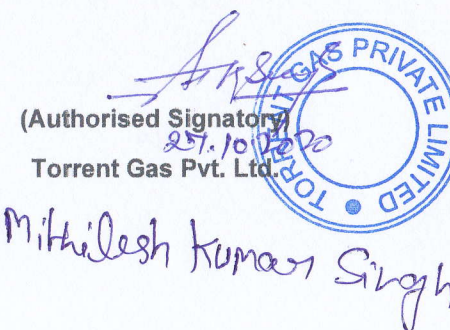 (Authorised Signatory)
27.10.2020
Torrent Gas Pvt. Ltd.
TORRENT GAS PRIVATE LIMITED
Mithilesh Kumar Singh